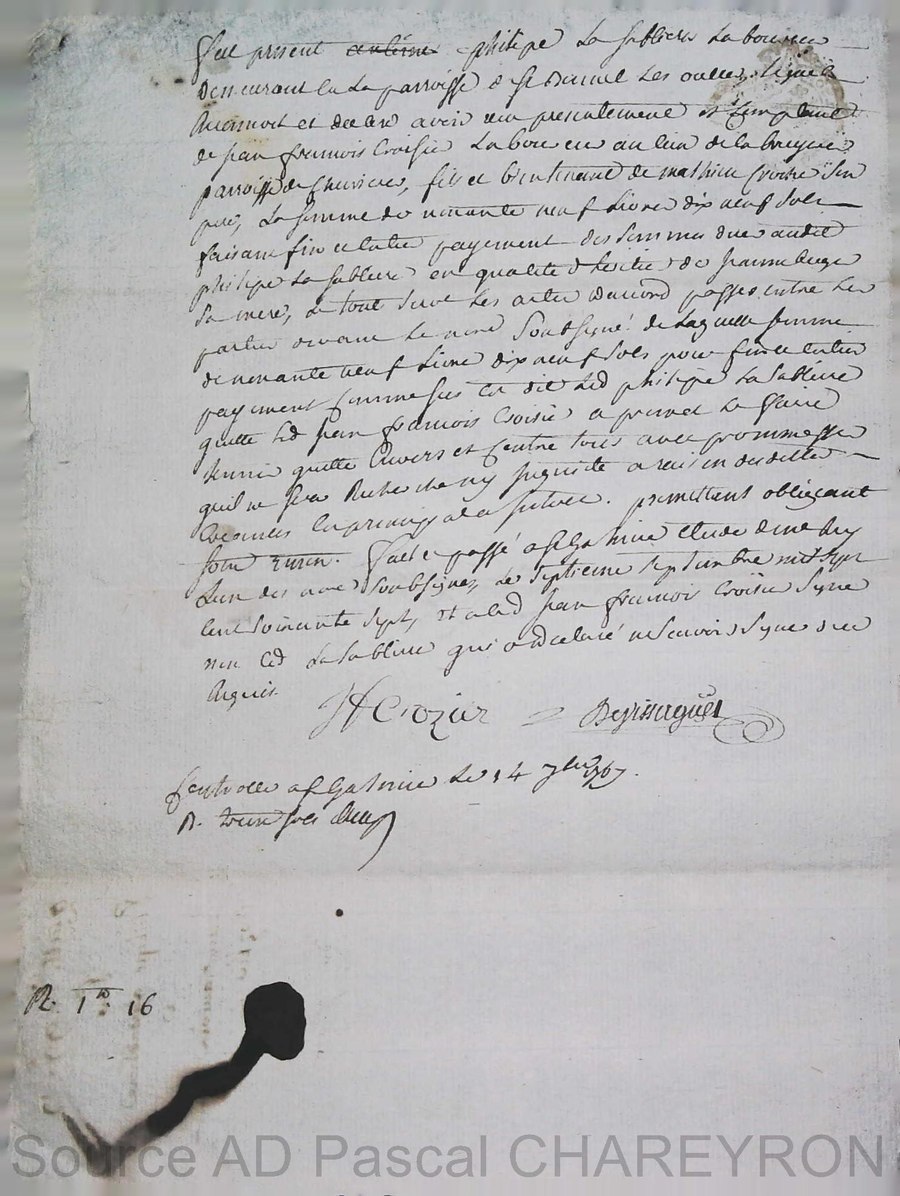 fut present philipe La Sabliere Laboureur
demeurant en La parroisse de St Les oulle, Lequel
et declare avoir reçu presentement et Comptant
de jean françois Croisier Laboureur au lieu de la bruyere
parroisse de chevriere, fils et bientenant de mathieu Croisier Son
pere, La Somme de nonante neuf Livre dix neuf Sols
faisant fin et entier payement des Sommes due audit
philipe La Sabliere en qualité d'heritier de jeanne
Sa mere, Le tout Suivt Les actes passés entre Les
parties devant Le nore Soubsigné: de Laquelle Somme
de nonante neuf Livre dix neuf Sols pour fin et entier
payement Comme Sus est dit Led philipe La Sabliere
quitte Led jean françois Croisier a promet Le faire
tenir quitte Envers et Contre tous avec prommesse
qu'il ne Sera Recherché ny Inquieté a raison desdittes
Sommes En principal et : promettent obligeant
Fait et passé a St Galmier etude de me
L'un des nores Soubsignez, Le Septieme Septembre mil Sept
Cent Soixante Sept, Et a led jean françois Croisier Signé
non Led La Sabliere qui a declaré ne Sçavoir Signer de ce
Enquis.
JF Crozier
Controllé a St Galmier Le 14 7bre 1767.
R. Sols
R. 1 16
Source AD Pascal CHAREYRON